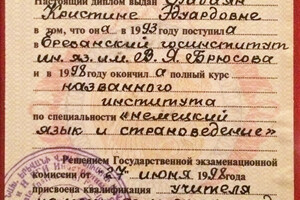 Настоящий диплом выдан
Кристине Эдуардовне
в том, что она в 1993 году поступила
в Ереванский госинститут
ин. яз. им. В. Я. Брюсова
и в 1998 году окончила полный курс
названного
института
по специальности «немецкий
язык и страноведение»
Решением Государственной экзаменационной
комиссии от 27 июня 1998 года
присвоена квалификация учителя